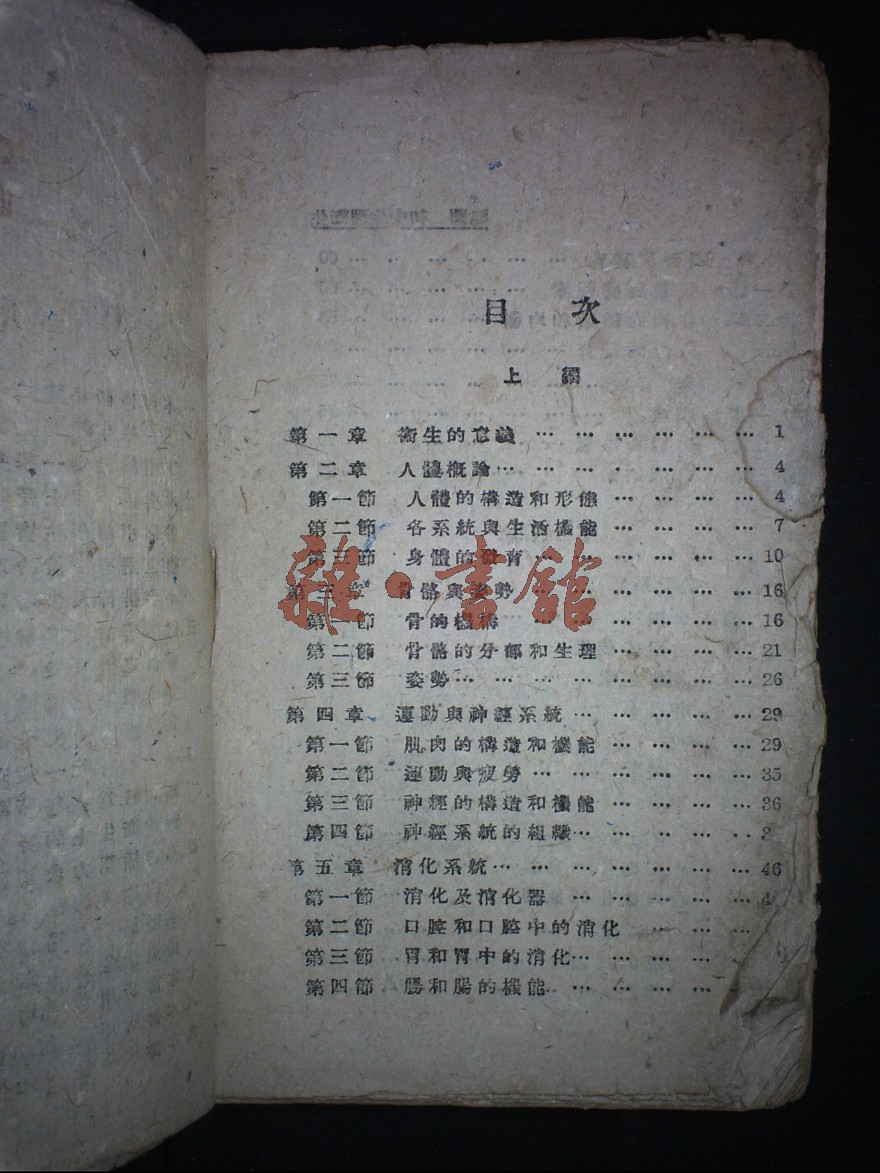 目 次
上 編
第一章 衛生的意義 … … … … … … 1
第二章 人體概論 … … … … … … 4
第一節 人體的構造和形態 … … … … 4
第二節 各系統與生活機能 … … … … 7
第三節 身體的發育 … … … … … … 10
第三章 骨骼與姿勢 … … … … … … 16
第一節 骨的機構 … … … … … … 16
第二節 骨骼的分部和生理 … … … … 21
第三節 姿勢 … … … … … … … … 26
第四章 運動與神經系統 … … … … … 29
第一節 肌肉的構造和機能 … … … … 29
第二節 運動與疲勞 … … … … … … 35
第三節 神經的構造和機能 … … … … 36
第四節 神經系統的組織 … … … … 3
第五章 消化系統 … … … … … … … 46
第一節 消化及消化器 … … … … 4
第二節 口腔和口腔中的消化 … … …
第三節 胃和胃中的消化 … … … …
第四節 腸和腸的機能 … … … …
雜·書館